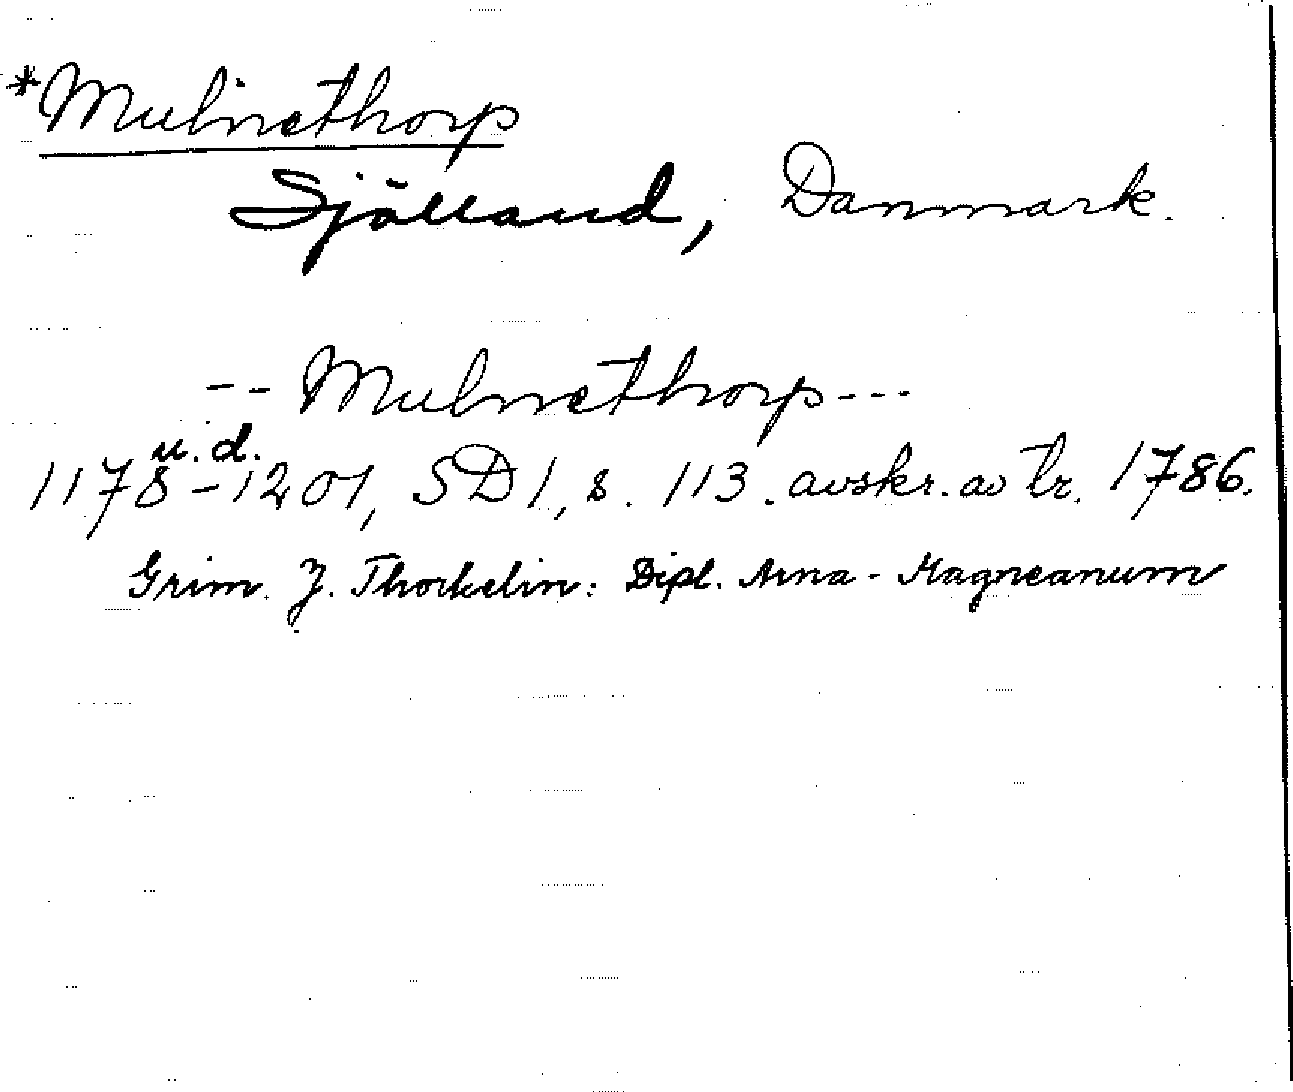 *Mulnethorp
Själland, Danmark.
-- Mulnethorp ---
u. d.
1178-1201, SD 1, s. 113. avskr. av tr. 1786.
Grim. J. Thorkelin: Dipl. Arna-Magneanum